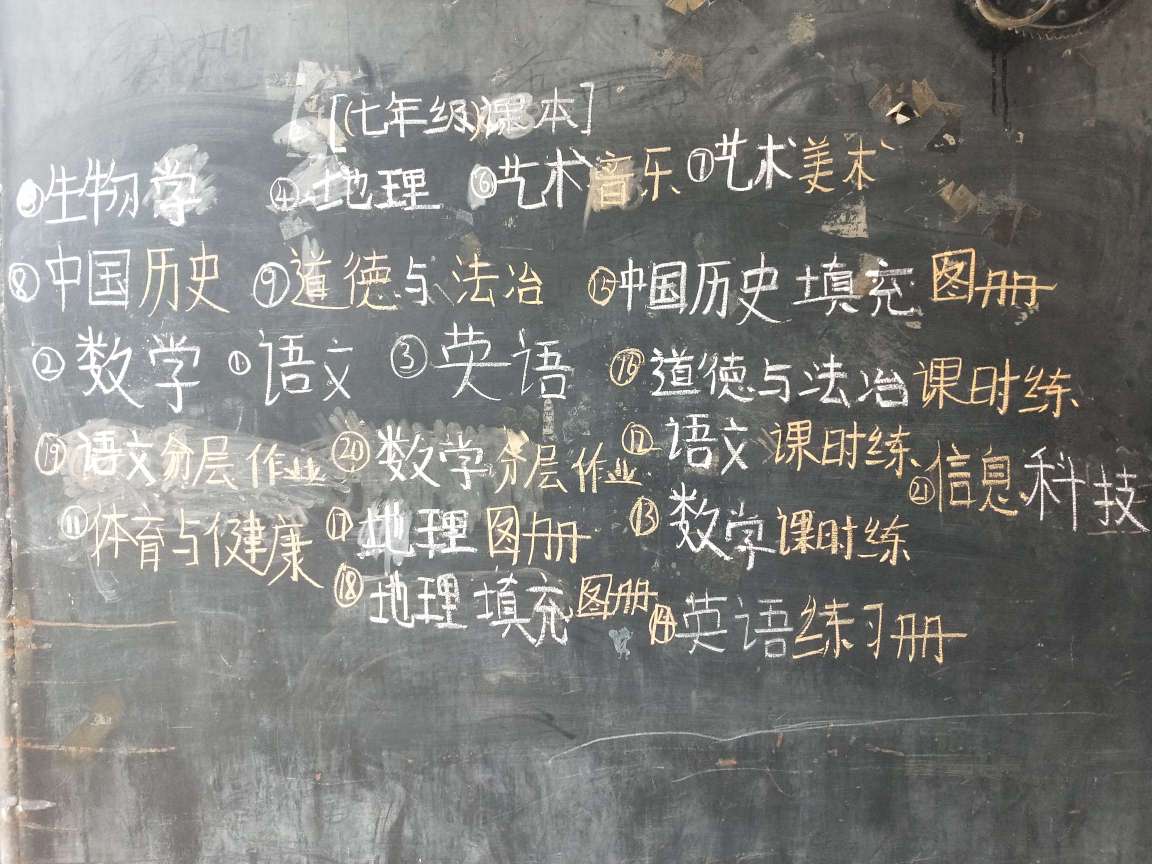 [(七年级)课本]
⑤生物学 ④地理 ⑥艺术音乐 ⑦艺术美术
⑧中国历史 ⑨道德与法治 ⑮中国历史填充图册
②数学 ①语文 ③英语 ⑯道德与法治课时练
⑲语文分层作业 ⑳数学分层作业 ⑫语文课时练 ㉑信息科技
⑪体育与健康 ⑰地理图册 ⑬数学课时练
⑱地理填充图册 ⑭英语练习册